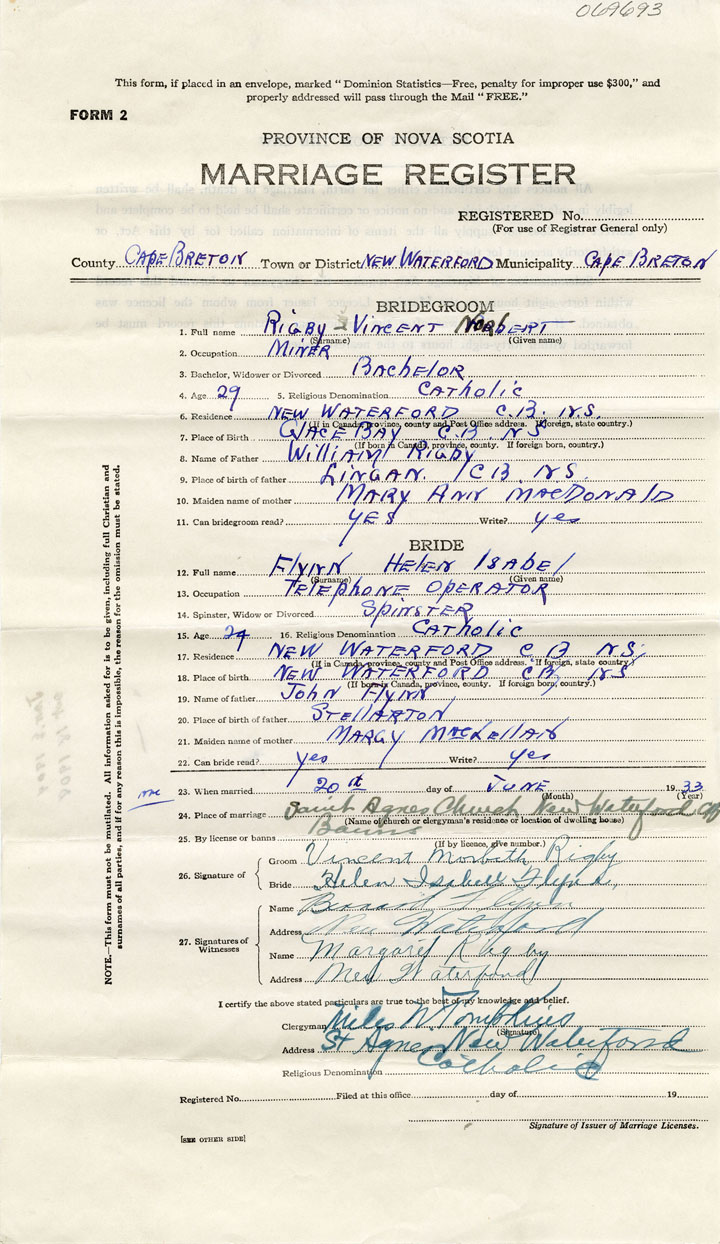 069693
This form, if placed in an envelope, marked “ Dominion Statistics—Free, penalty for improper use $300,” and
properly addressed will pass through the Mail “ FREE.”
FORM 2
PROVINCE OF NOVA SCOTIA
MARRIAGE REGISTER
REGISTERED No.
(For use of Registrar General only)
County CAPE BRETON Town or District NEW WATERFORD Municipality CAPE BRETON
BRIDEGROOM
1. Full name RIGBY - VINCENT NORBERT
(Surname) (Given name)
2. Occupation MINER
3. Bachelor, Widower or Divorced BACHELOR
4. Age 29 5. Religious Denomination CATHOLIC
6. Residence NEW WATERFORD C.B. N.S.
(If in Canada, province, county and Post Office address. If foreign, state country.)
7. Place of Birth GLACE BAY C.B. N.S
(If born in Canada, province, county. If foreign born, country.)
8. Name of Father William Rigby
9. Place of birth of father LINGAN. C B. N.S.
10. Maiden name of mother MARY ANN MACDONALD
11. Can bridegroom read? YES Write? yes
BRIDE
12. Full name FLYNN HELEN ISABEL
(Surname) (Given name)
13. Occupation TELEPHONE OPERATOR
14. Spinster, Widow or Divorced SPINSTER
15. Age 24 16. Religious Denomination CATHOLIC
17. Residence NEW WATERFORD C B N.S.
(If in Canada, province, county and Post Office address. If foreign, state country)
18. Place of birth NEW WATERFORD C B, N S
(If born in Canada, province, county. If foreign born, country.)
19. Name of father JOHN FLYNN
20. Place of birth of father STELLARTON
21. Maiden name of mother MARGY MACLELLAN
22. Can bride read? yes Write? yes
23. When married 20th day of JUNE 1933
(Month) (Year)
24. Place of marriage Saint Agnes Church New Waterford CB
(Name of church or clergyman's residence or location of dwelling house)
25. By license or banns Banns
(If by licence, give number.)
26. Signature of
Groom Vincent Rigby
Bride Helen Isabell Flynn
27. Signatures of Witnesses
Name Flynn
Address New Waterford
Name Margaret Rigby
Address New Waterford
I certify the above stated particulars are true to the best of my knowledge and belief.
Clergyman Miles N. Tompkins
(Signature)
Address St Agnes New Waterford
Religious Denomination Catholic
Registered No. Filed at this office day of 19
Signature of Issuer of Marriage Licenses.
[SEE OTHER SIDE]
NOTE.—This form must not be mutilated. All information asked for is to be given, including full Christian and
surnames of all parties, and if for any reason this is impossible, the reason for the omission must be stated.